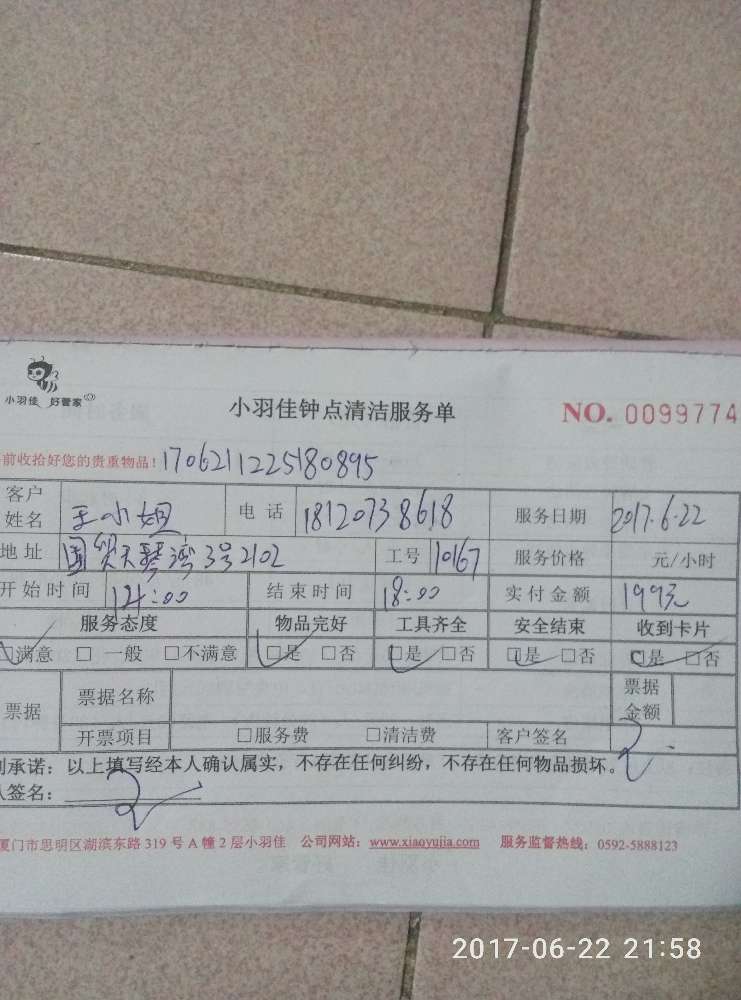 小羽佳 好管家
小羽佳钟点清洁服务单
NO. 0099774
前收拾好您的贵重物品! 1706211225180895
客户姓名 王小姐 电话 18120738618 服务日期 2017.6.22
地址 国贸天琴湾3号2102 工号 10167 服务价格 元/小时
开始时间 14:00 结束时间 18:00 实付金额 199元
服务态度 物品完好 工具齐全 安全结束 收到卡片
☑满意 □一般 □不满意 ☑是 □否 ☑是 □否 ☑是 □否 ☑是 □否
票据 票据名称 票据金额
开票项目 □服务费 □清洁费 客户签名
承诺：以上填写经本人确认属实，不存在任何纠纷，不存在任何物品损坏。
签名：
厦门市思明区湖滨东路 319 号 A 幢 2 层小羽佳 公司网站：www.xiaoyujia.com 服务监督热线：0592-5888123
2017-06-22 21:58